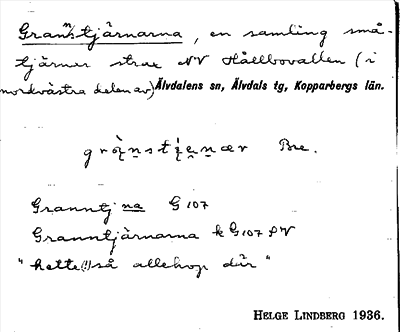 Grannstjärnarna, en samling små-
tjärner strax NV Hållbovallen (i
nordvästra delen av) Älvdalens sn, Älvdals tg, Kopparbergs län.
Bre.
Granntj na G 107
Granntjärnarna k G 107 NV
"hette(!) så allehop där"
HELGE LINDBERG 1936.